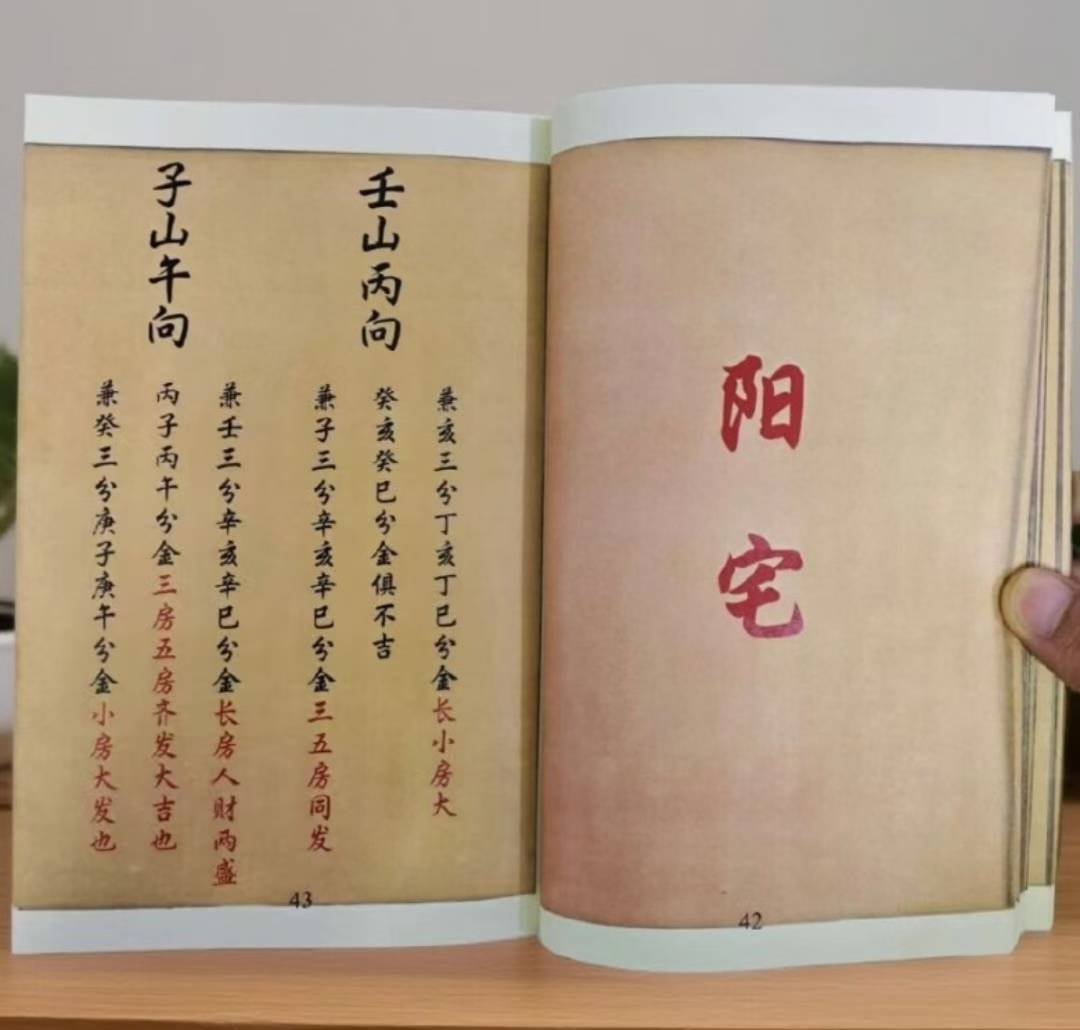 阳宅
42
壬山丙向
兼亥三分丁亥丁巳分金长小房大
癸亥癸巳分金俱不吉
兼子三分辛亥辛巳分金三五房同发
子山午向
兼壬三分辛亥辛巳分金长房人财两盛
丙子丙午分金三房五房齐发大吉也
兼癸三分庚子庚午分金小房大发也
43